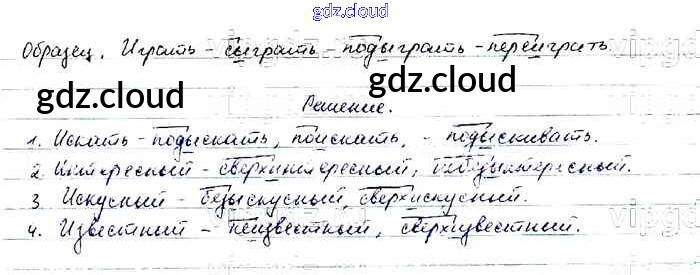 gdz.cloud
Образец. Играть - сыграть - подыграть - переиграть
gdz.cloud gdz.cloud
Решение.
1. Искать - подыскать, поискать, - подыскивать.
2. Интересный - сверхинтересный, небезынтересный.
3. Искусный - безыскусный, сверхискусный.
4. Известный - неизвестный, сверхизвестный.